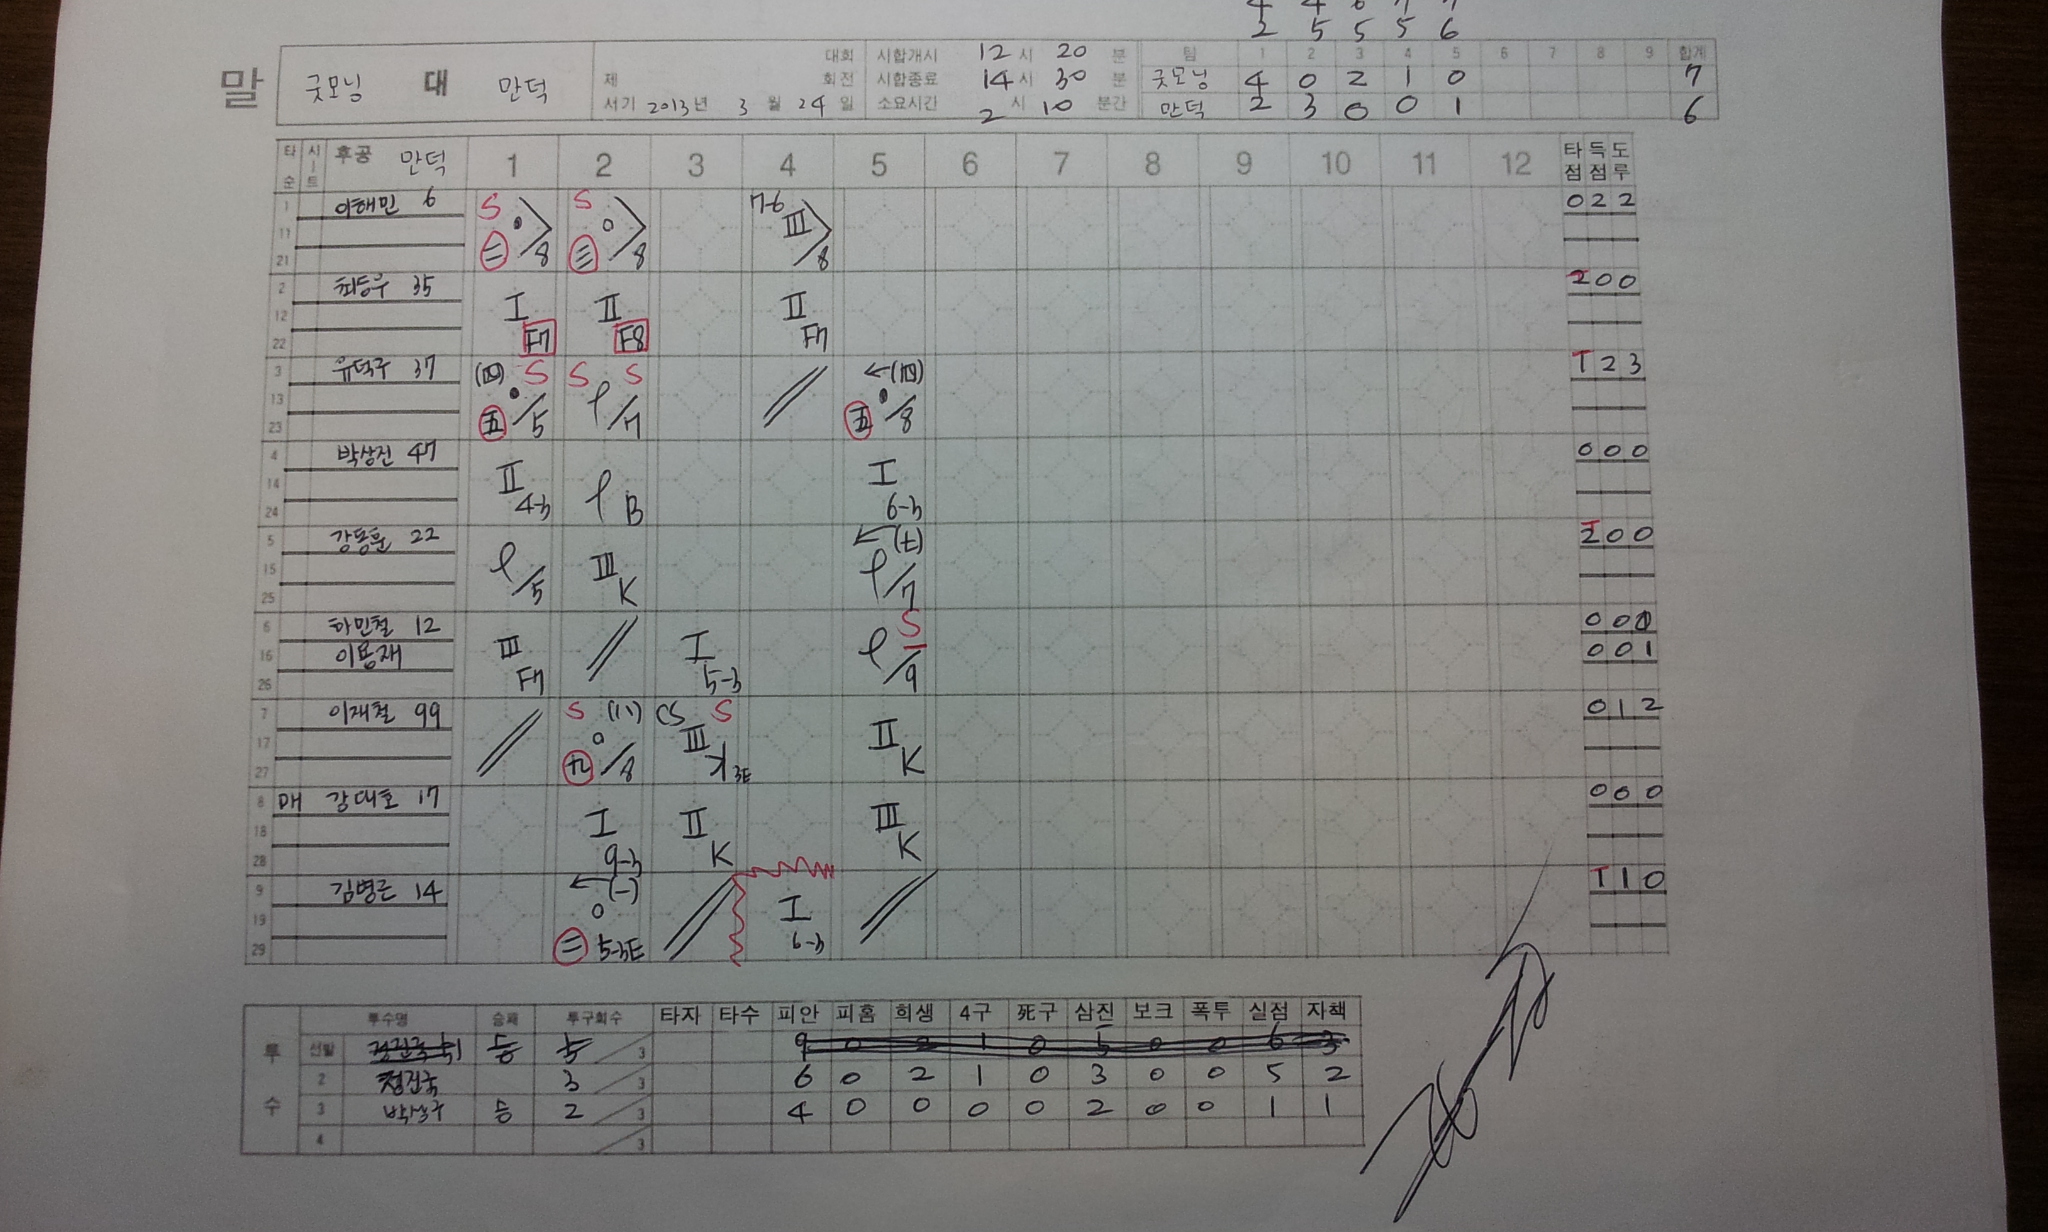 2 5 5 5 6
말 굿모닝 대 만덕
제 대회 회전
서기 2013년 3월 24일
시합개시 12시 20분
시합종료 14시 30분
소요시간 2시 10분간
팀 1 2 3 4 5 6 7 8 9 합계
굿모닝 4 0 2 1 0 7
만덕 2 3 0 0 1 6
타순 시트 후공 만덕 1 2 3 4 5 6 7 8 9 10 11 12 타점 득점 도루
1 이해민 6 S 8 S 8 7-6 III 8 0 2 2
11
21
2 35 I F7 II F8 II F7 2 0 0
12
22
3 유덕구 37 (四) S 五 5 S S 7 (四) 五 8 1 2 3
13
23
4 박상진 47 II 4-3 B I 6-3 0 0 0
14
24
5 강동훈 22 5 III K (七) 7 2 0 0
15
25
6 하민철 12 III F7 I 5-3 S 9 0 0 0
16 이용재 0 0 1
26
7 이재철 99 S 8 CS S III K 3E II K 0 1 2
17
27
8 강대호 17 I 9-3 II K III K 0 0 0
18
28
9 김병근 14 (一) 二 5-3E I 6-3 1 1 0
19
29
투수 투수명 승패 투구회수 타자 타수 피안 피홈 희생 4구 死구 삼진 보크 폭투 실점 자책
선발 승 5 3 9 0 2 1 0 5 0 0 6 3
2 정진욱 3 3 6 0 2 1 0 3 0 0 5 2
3 승 2 3 4 0 0 0 0 2 0 0 1 1
4 3